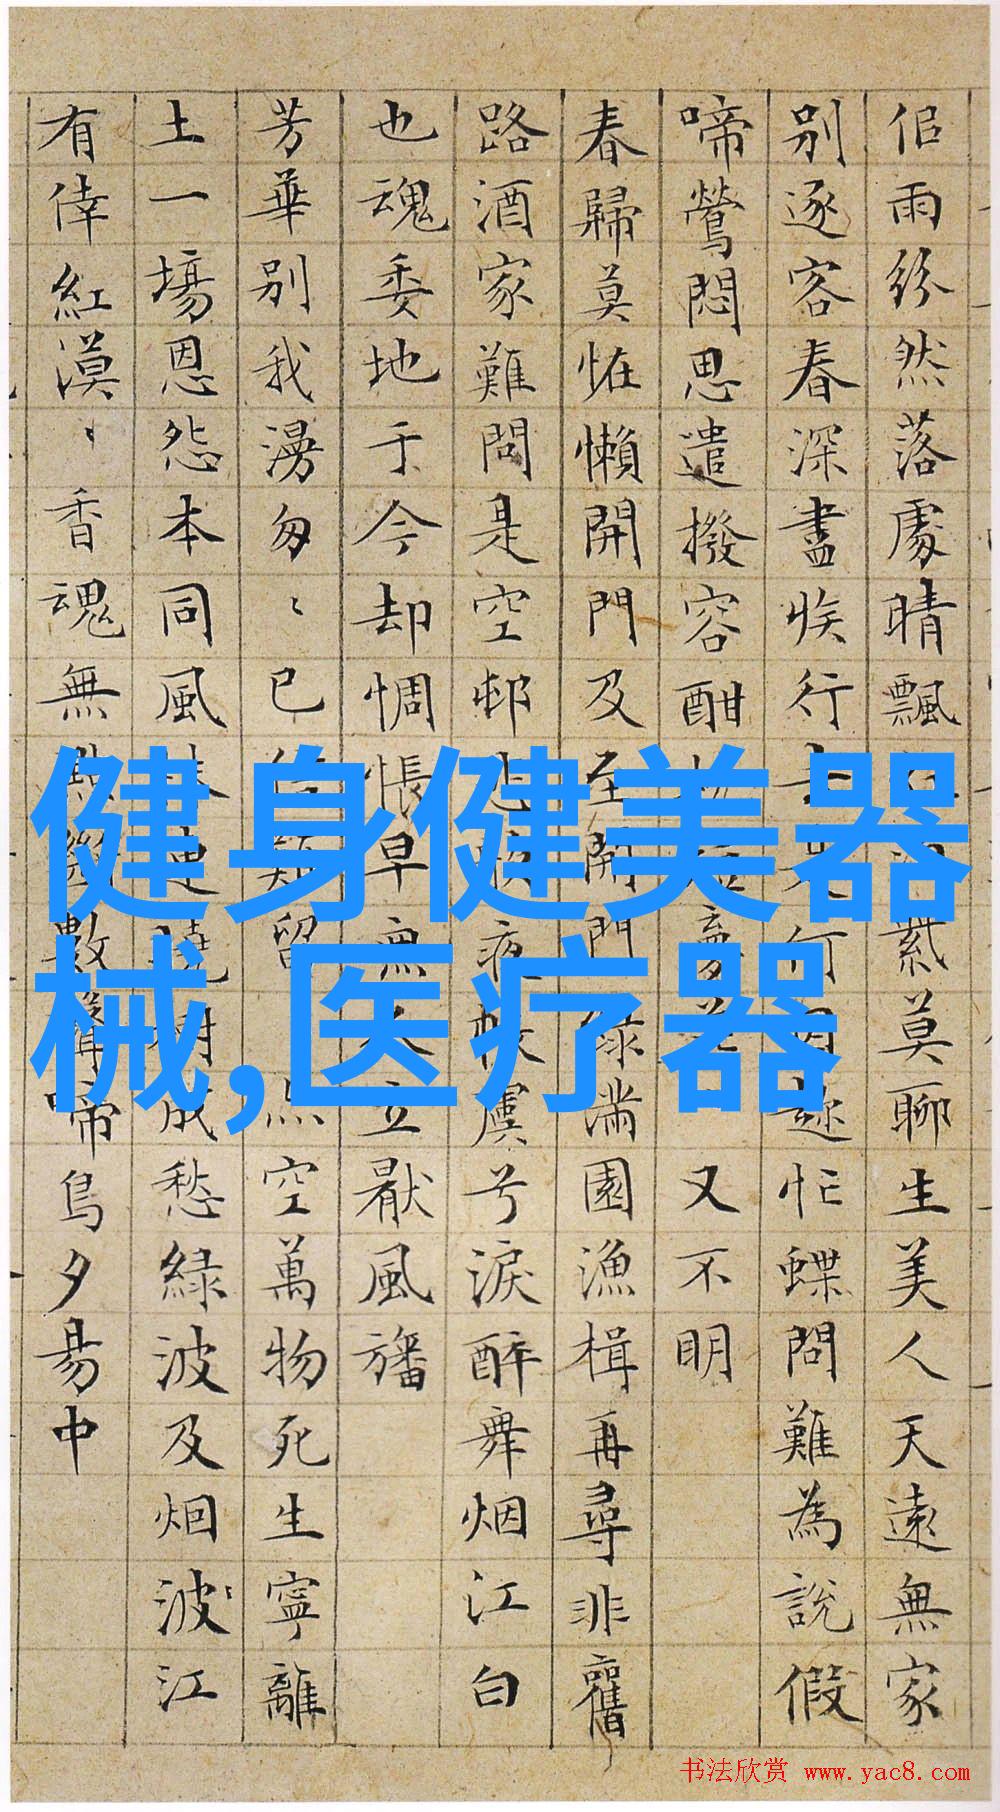 佀雨紛然落處晴飄紫莫聊生美人天遠無家
别逐客春深盡候行忙蝶問難為說假
啼鶯悶思遣撥容酣又不明
春歸莫怪懶開門及至開門緑滿園漁楫再尋非舊
路酒家難問是空邨夜帳虞兮淚醉舞烟江白
也魂委地于今却惆悵早無立厭風旛
芳華别我漫匆〻已留空萬物死生寧離
土一場恩怨本同風成愁緑波及烟波江
有倖紅漠〻香魂無數聲啼鳥夕昜中
健身健美器
械,医疗器
书法欣赏 www.yac8.com